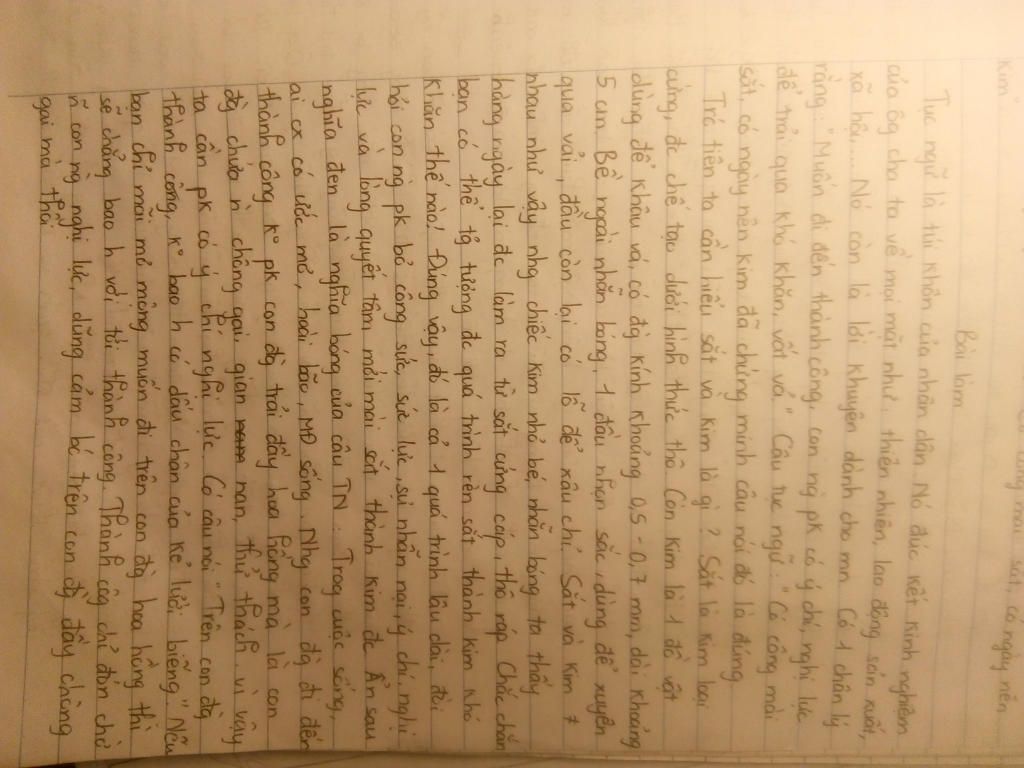 kim"
Bài làm
Tục ngữ là túi khôn của nhân dân. Nó đúc kết kinh nghiệm
của ôg cha ta về mọi mặt như: thiên nhiên, lao động sản xuất,
xã hội,... Nó còn là lời khuyên dành cho mn. Có 1 chân lý
rằng: "Muốn đi đến thành công, con ng pk có ý chí, nghị lực
để trải qua khó khăn, vất vả." Câu tục ngữ: "Có công mài
sắt, có ngày nên kim đã chứng minh câu nói đó là đúng.
Trc tiên ta cần hiểu sắt và kim là gì? Sắt là kim loại
cứng, đc chế tạo dưới hình thức thô. Còn kim là 1 đồ vật
dùng để khâu vá, có đg kính khoảng 0,5 - 0,7 mm, dài khoảng
5 cm. Bề ngoài nhẵn bóng, 1 đầu nhọn sắc, dùng để xuyên
qua vải, đầu còn lại có lỗ để xâu chỉ. Sắt và kim ≠
nhau như vậy nhg chiếc kim nhỏ bé, nhẵn bóng ta thấy
hàng ngày lại đc làm ra từ sắt cứng cáp, thô ráp. Chắc chắn
bạn có thể tg tượng đc quá trình rèn sắt thành kim khó
khăn thế nào! Đúng vậy, đó là cả 1 quá trình lâu dài, đòi
hỏi con ng pk bỏ công sức, sức lực, sự nhẫn nại, ý chí nghị
lực và lòng quyết tâm mới mài sắt thành kim đc. Ẩn sau
nghĩa đen là nghĩa bóng của câu TN. Trog cuộc sống,
ai cx có ước mơ, hoài bão, MĐ sống. Nhg con đg đi đến
thành công ko pk con đg trải đầy hoa hồng mà là con
đg chứa n chông gai, gian nan, thử thách. vì vậy
ta cần pk có ý chí nghị lực. Có câu nói: "Trên con đg
thành công, ko bao h có dấu chân của kẻ lười biếng." Nếu
bạn chỉ mãi mơ mộng muốn đi trên con đg hoa hồng thì
sẽ chẳng bao h với tới thành công. Thành côg chỉ đón chờ
n~ con ng nghị lực, dũng cảm bc trên con đg đầy chông
gai mà thôi